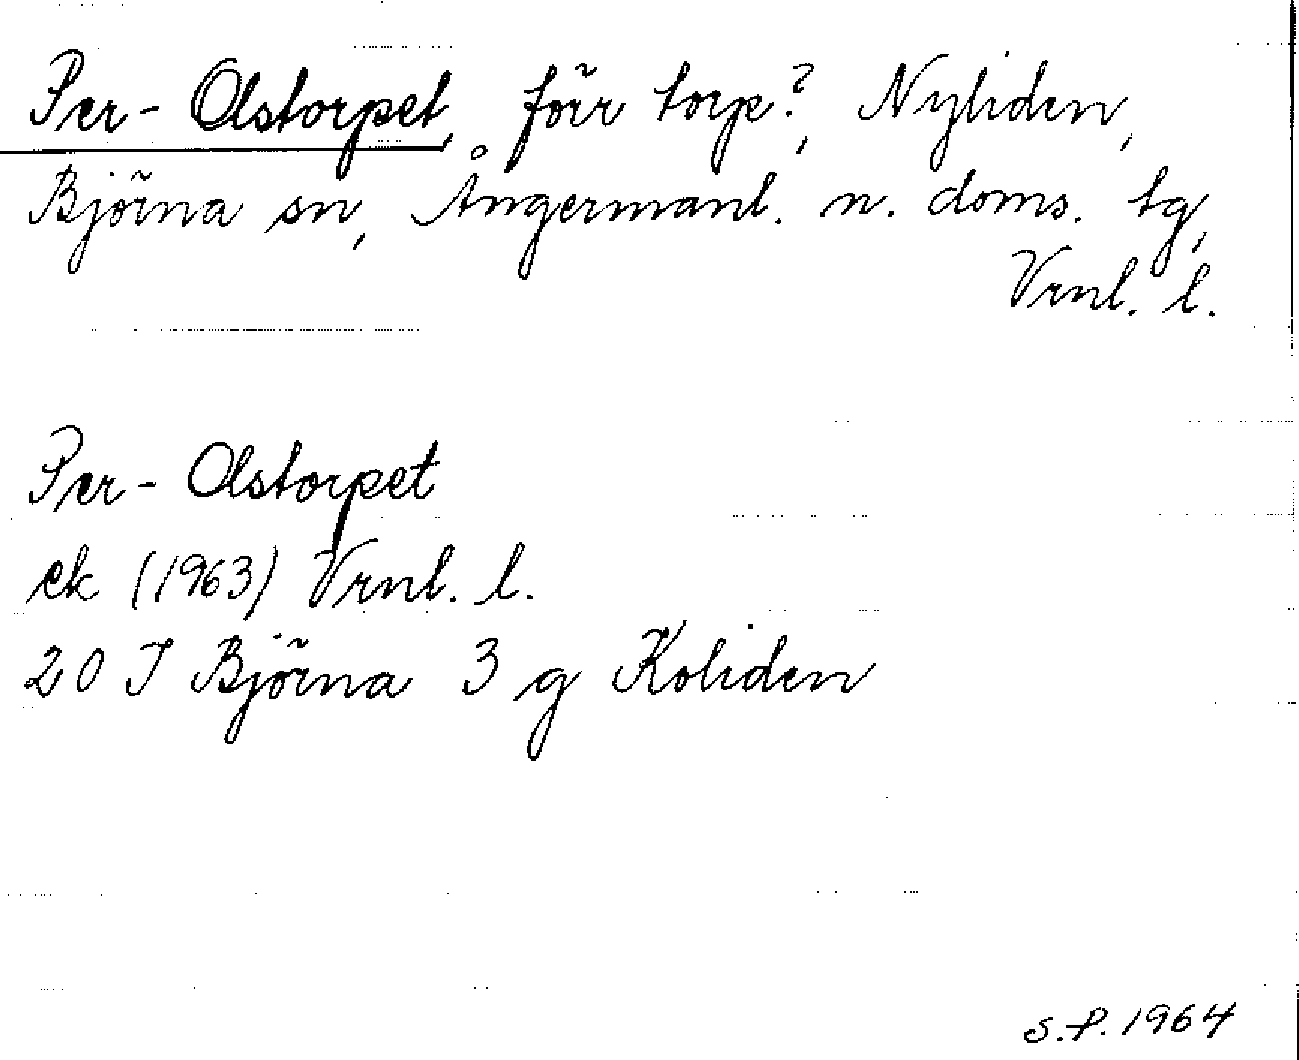 Per-Olstorpet, förr torp?, Nyliden,
Björna sn, Ångermanl. n. doms. tg,
Vrnl. l.
Per-Olstorpet
ek (1963) Vrnl. l.
20 J Björna 3 g Koliden
S.P. 1964